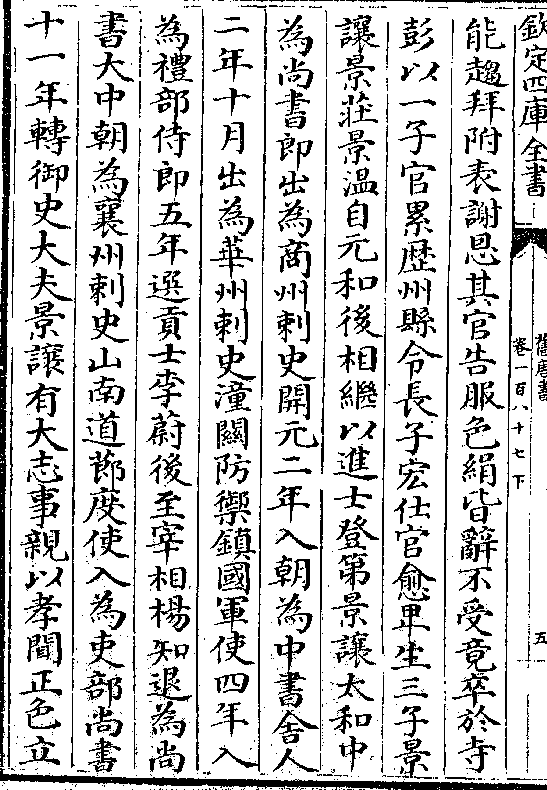 欽定四庫全書
舊唐書
卷一百八十七下
五
能趨拜附表謝恩其官告服色絹皆辭不受竟卒於寺
彭以一子官累歴州縣令長子宏仕官愈卑生三子景
讓景莊景温自元和後相繼以進士登第景讓太和中
為尚書郎出為商州刺史開元二年入朝為中書舍人
二年十月出為華州刺史潼關防禦鎮國軍使四年入
為禮部侍郎五年選貢士李蔚後至宰相楊知退為尚
書大中朝為襄州刺史山南道節度使入為吏部尚書
十一年轉御史大夫景讓有大志事親以孝聞正色立